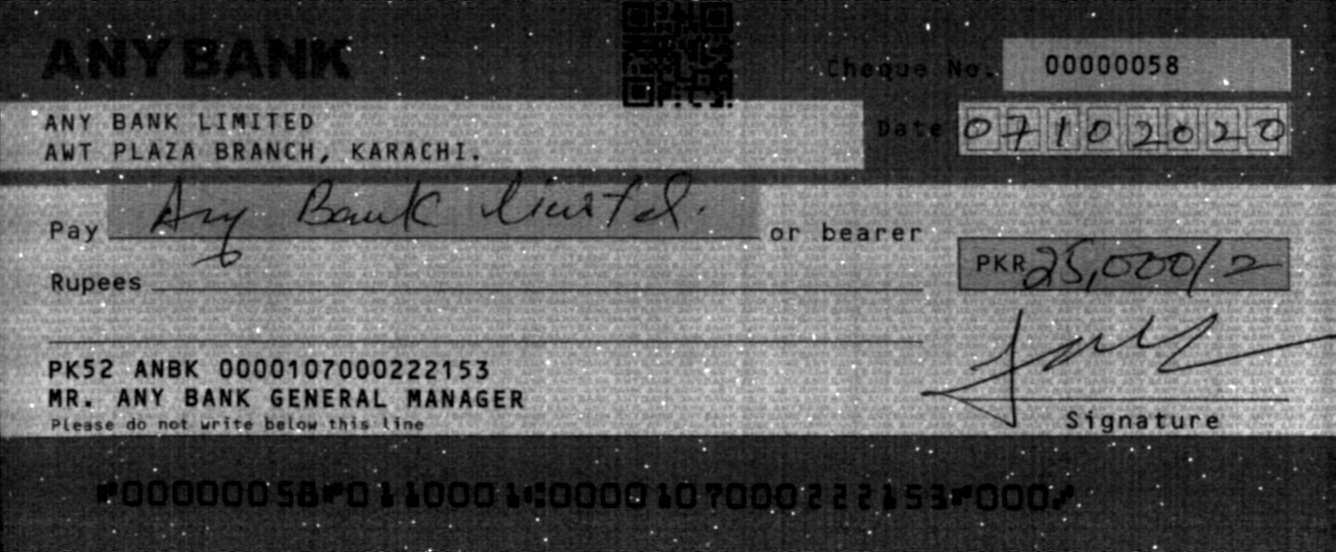 ANY BANK
Cheque No. 00000058
ANY BANK LIMITED
AWT PLAZA BRANCH, KARACHI.
Date 07102020
Pay Any Bank Limited. or bearer
Rupees
PKR 25,000/=
PK52 ANBK 0000107000222153
MR. ANY BANK GENERAL MANAGER
Please do not write below this line
Signature
⑈00000058⑈0110001⑆0000107000222153⑈000⑇